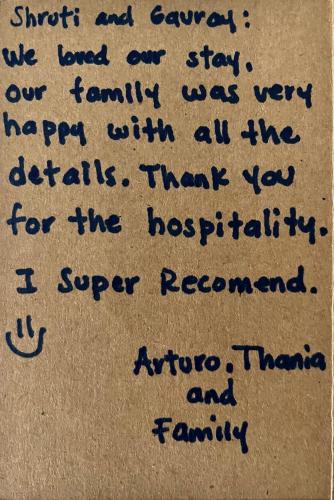 Shruti and Gaurav:
We loved our stay,
our family was very
happy with all the
details. Thank you
for the hospitality.
I Super Recomend.
Arturo, Thania
and
Family